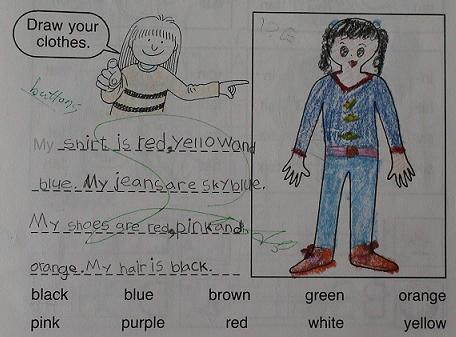 Draw your
clothes.
buttons
My shirt is red, yellow and
blue. My jeans are sky blue.
My shoes are red, pink and
orange. My hair is black.
black blue brown green orange
pink purple red white yellow